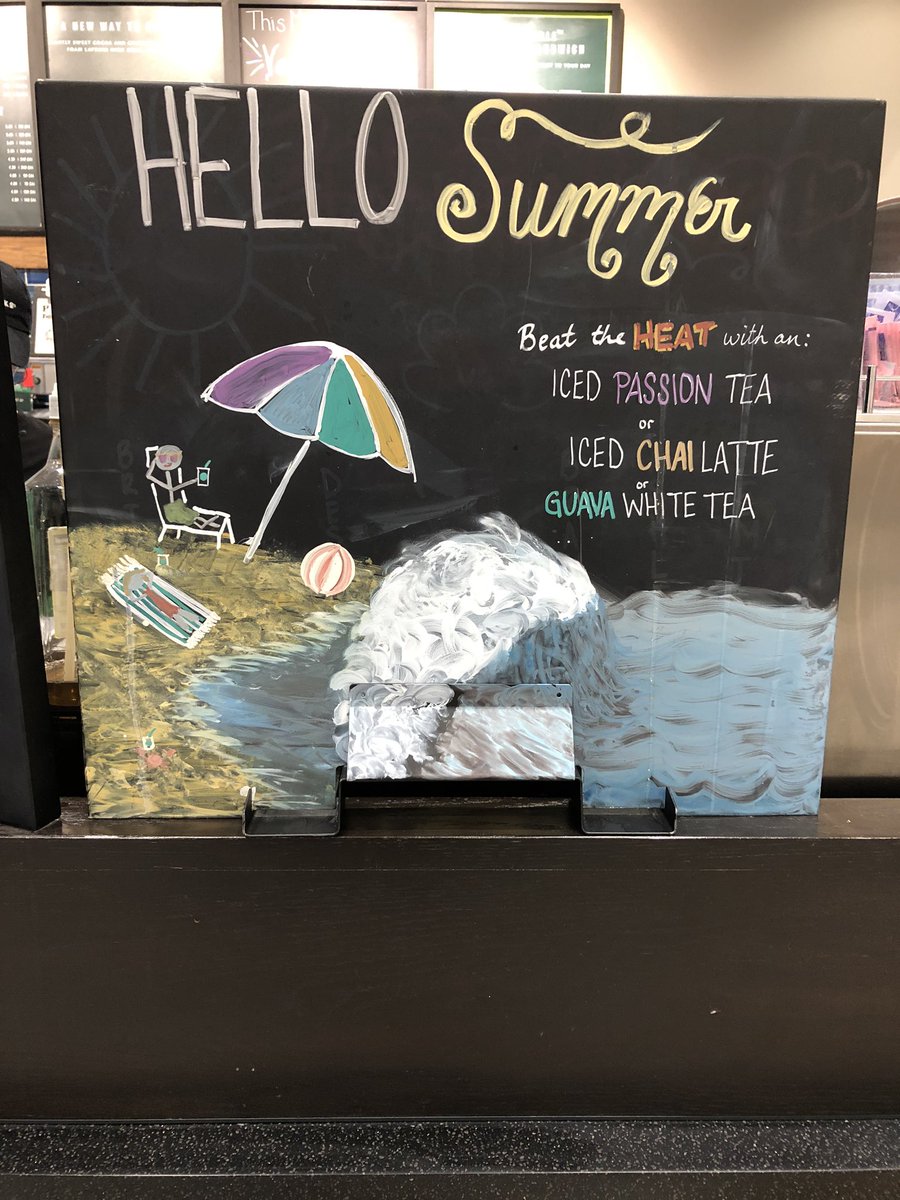 A NEW WAY TO
This
HELLO Summer
Beat the HEAT with an:
ICED PASSION TEA
or
ICED CHAI LATTE
or
GUAVA WHITE TEA